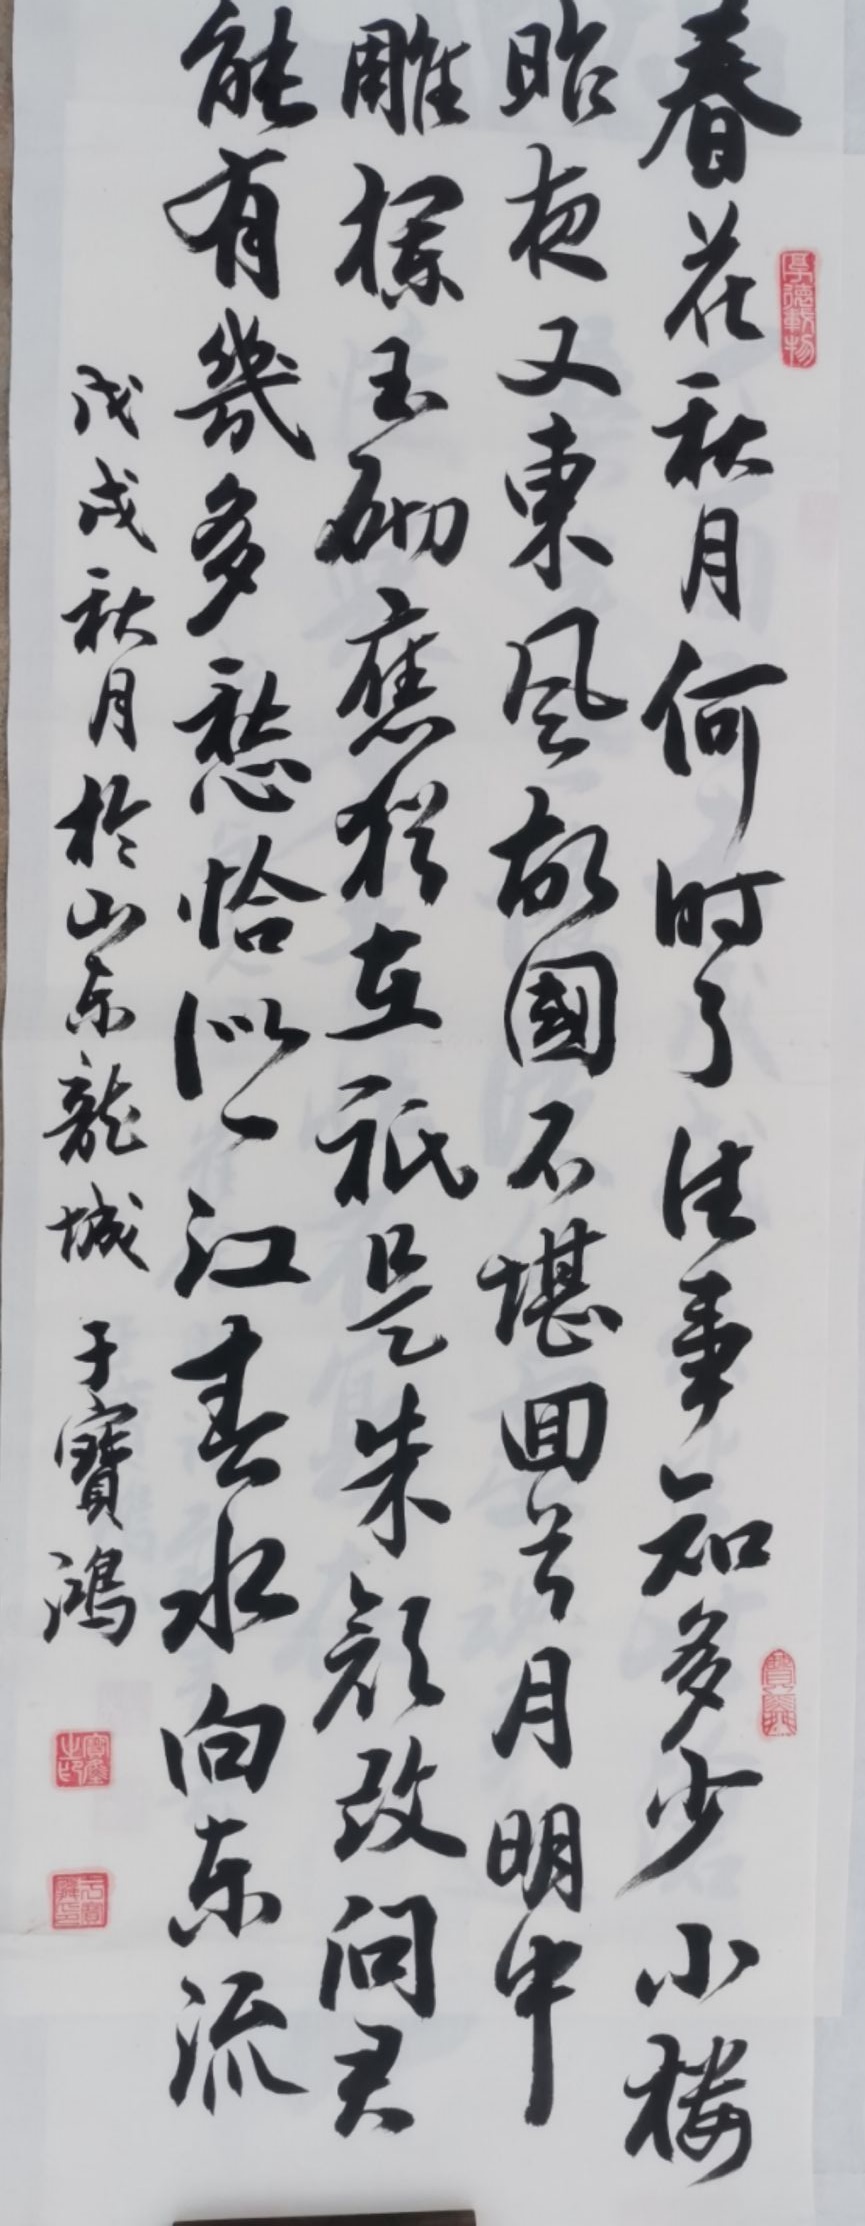 春花秋月何时了往事知多少小楼
昨夜又東風故國不堪回首月明中
雕欄玉砌應猶在祇是朱顔改問君
能有幾多愁恰似一江春水向东流
戊戌秋月於山东龍城 于寶鴻
厚德載物